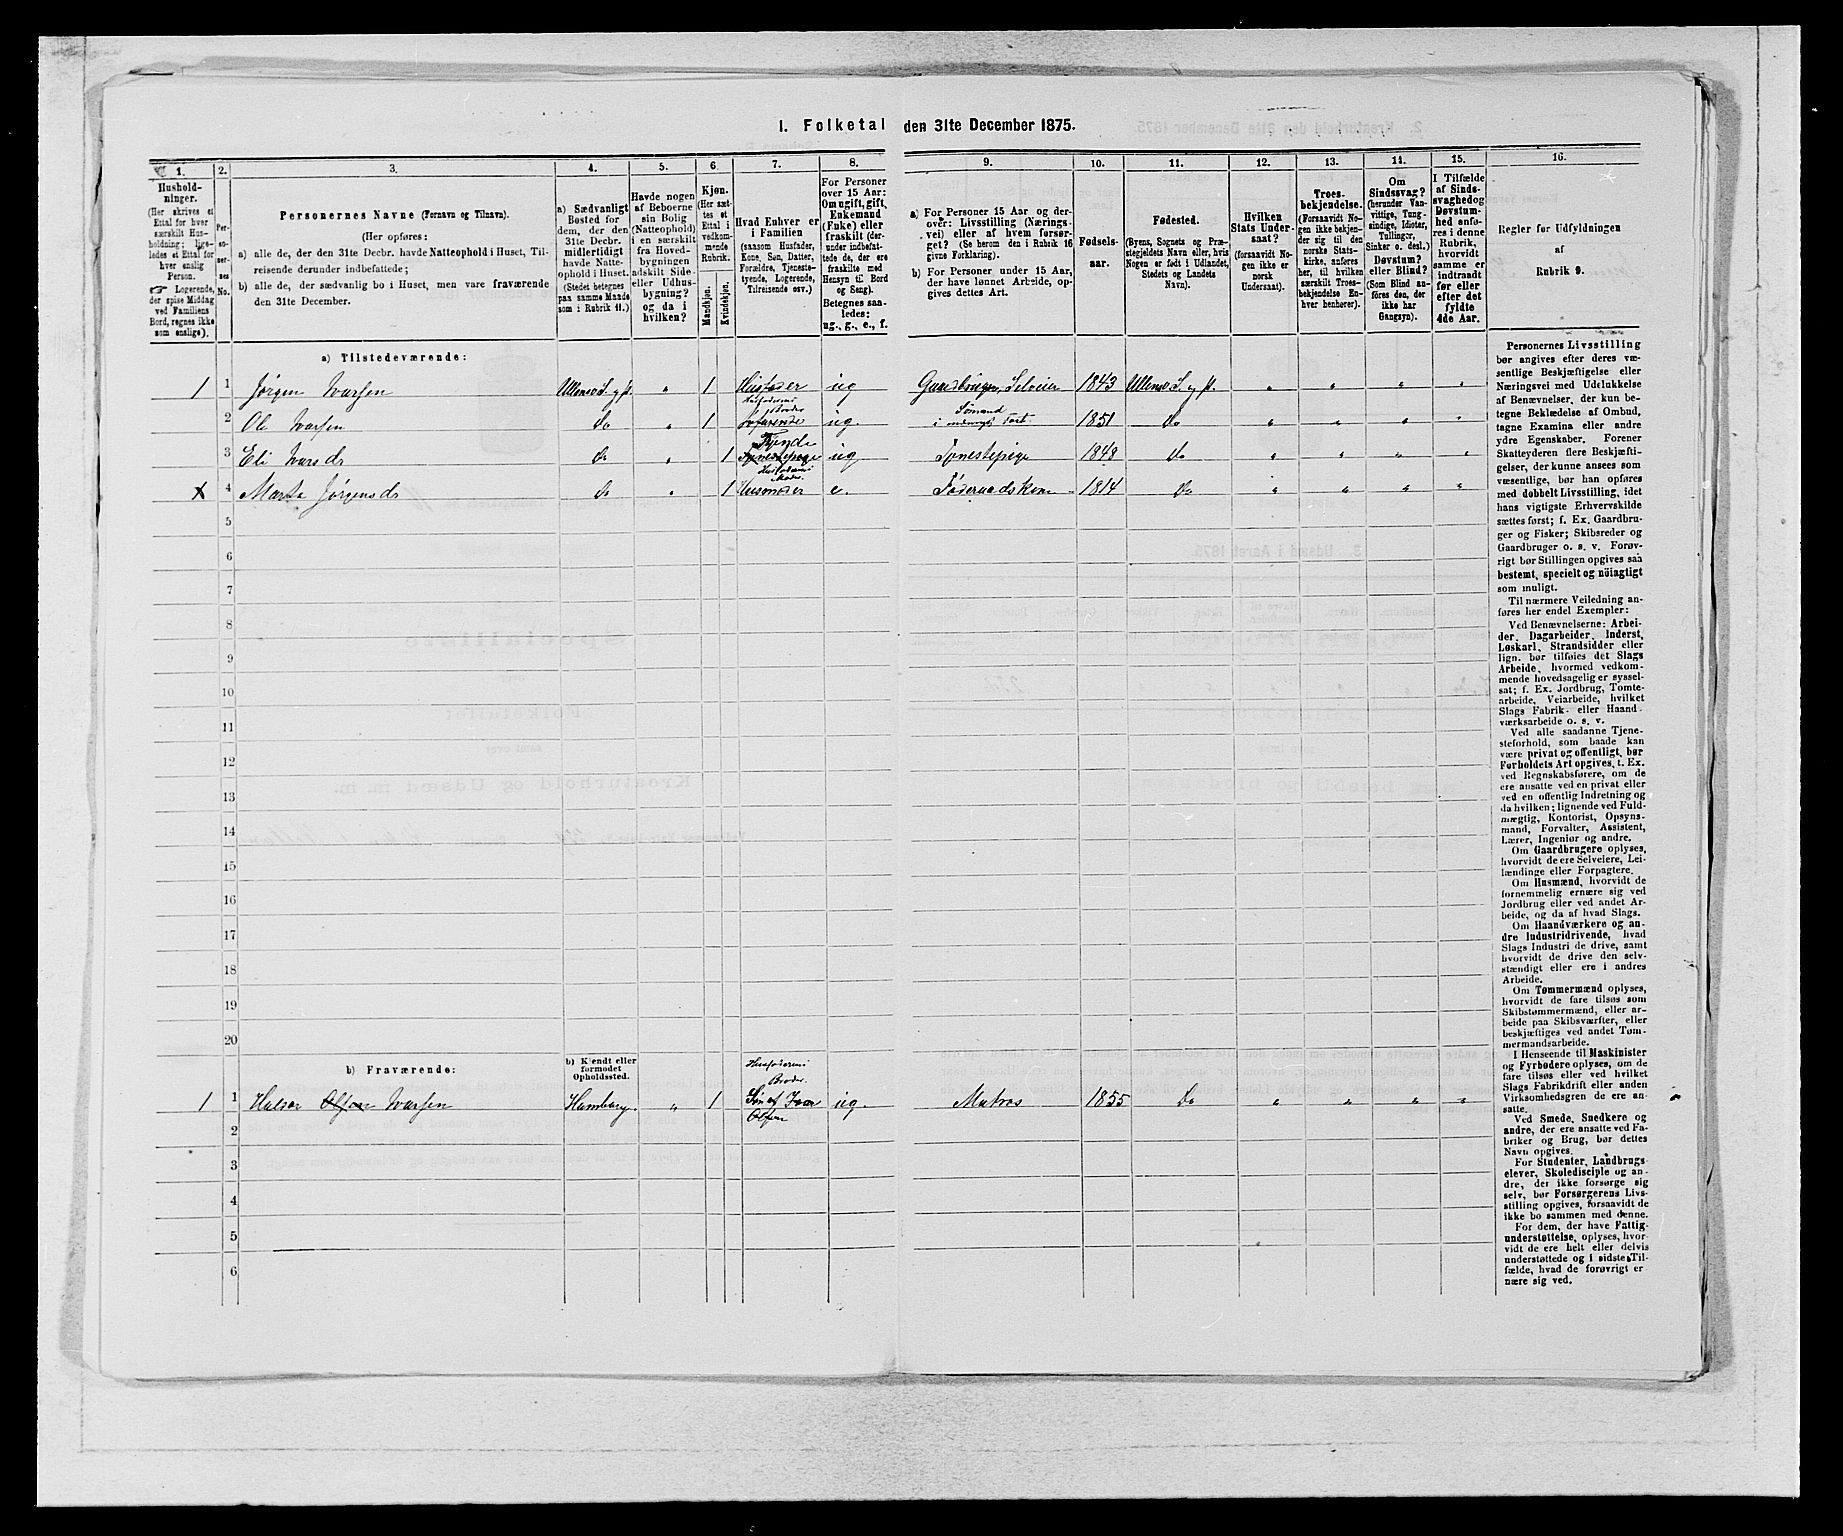 1. Folketal den 31te December 1875.
1. 2. 3. 4. 5. 6. 7. 8. 9. 10. 11. 12. 13. 14. 15. 16.
Hushold-
ninger.
(Her skrives et
Ettal for hver
særskilt Hus-
holdning; lige-
ledes et Ettal for
hver enslig
Person.
☞ Logerende,
der spise Middag
ved Familiens
Bord, regnes ikke
som enslige).
Per-
so-
ner-
nes
No.
Personernes Navne (Fornavn og Tilnavn).
(Her opføres:
a) alle de, der den 31te Decbr. havde Natteophold i Huset, Til-
reisende derunder indbefattede;
b) alle de, der sædvanlig bo i Huset, men vare fraværende
den 31te December.
a) Sædvanligt
Bosted for
dem, der den
31te Decbr.
midlertidigt
havde Natte-
ophold i Huset.
(Stedet betegnes
paa samme Maade
som i Rubrik 11.)
Havde nogen
af Beboerne
sin Bolig
(Natteophold)
i en særskilt
fra Hoved-
bygningen
adskilt Side-
eller Udhus-
bygning?
og da i
hvilken?
Kjøn.
(Her sæt-
tes et
Ettal i
vedkom-
mende
Rubrik.
Mandkjøn.
Kvindekjøn.
Hvad Enhver er
i Familien
(saasom Husfader,
Kone, Søn, Datter,
Forældre, Tjeneste-
tyende, Logerende,
Tilreisende osv.)
For Personer
over 15 Aar:
Om ugift, gift,
Enkemand
(Enke) eller
fraskilt (der-
under indbefat-
tede de, der ere
fraskilte med
Hensyn til Bord
og Seng).
Betegnes saa-
ledes:
ug., g., e., f.
a) For Personer 15 Aar og der-
over: Livsstilling (Nærings-
vei) eller af hvem forsør-
get? (Se herom den i Rubrik 16
givne Forklaring).
b) For Personer under 15 Aar,
der have lønnet Arbeide, op-
gives dettes Art.
Fødsels-
aar.
Fødested.
(Byens, Sognets og Præ-
stegjeldets Navn eller, hvis
Nogen er født i Udlandet,
Stedets og Landets
Navn).
Hvilken
Stats Under-
saat?
(forsaavidt No-
gen ikke er
norsk
Undersaat).
Troes-
bekjendelse.
(Forsaavidt No-
gen ikke bekjen-
der sig til den
norske Stats-
kirke, anføres
her, til hvilken
særskilt Troes-
bekjendelse En-
hver henhører).
Om
Sindssvag?
(herunder Van-
vittige, Tung-
sindige, Idioter,
Tullinger,
Sinker o. desl.)
Døvstum?
eller Blind?
(Som Blind an-
føres den, der
ikke har
Gangsyn).
I Tilfælde
af Sinds-
svaghed og
Døvstum-
hed anfø-
res i denne
Rubrik,
hvorvidt
samme er
indtraadt
før eller
efter det
fyldte
4de Aar.
Regler for Udfyldningen
af
Rubrik 9.
a) Tilstedeværende:
1 1 Jørgen Ivarsen Ullensv S. og P. " 1 Husfader ug Gaardbruger, Selveier 1843 Ullensv S. og P. " " " "
Husfaderens
Broder Sømand
2 Ole Ivarsen do " 1 ug. i udenrigs Fart 1851 do " " " "
Tjende
3 Eli Ivarsdr do " 1 Tjenestepige ug Tjenestepige 1848 do " " " "
Husfaderens
Moder.
x 4 Marta Jørgensdr do " 1 Husmoder e. Føderaadskone 1814 do " " " "
5
6
7
8
9
10
11
12
13
14
15
16
17
18
19
20
b) Fraværende:
b) Kjendt eller
formodet
Opholdssted.
Husfaderens
Broder.
1 1 Halvor Olsen Ivarsen Hamburg. " 1 Søn af Ivar ug. Matros 1855 do " " " "
Olsen
2
3
4
5
6
Personernes Livsstilling
bør angives efter deres væ-
sentlige Beskjæftigelse eller
Næringsvei med Udelukkelse
af Benævnelser, der kun be-
tegne Beklædelse af Ombud,
tagne Examina eller andre
ydre Egenskaber. Forener
Skatteyderen flere Beskjæfti-
gelser, der kunne ansees som
væsentlige, bør han opføres
med dobbelt Livsstilling, idet
hans vigtigste Erhvervskilde
sættes først; f. Ex. Gaardbru-
ger og Fisker; Skibsreder og
Gaardbruger o. s. v. Forøv-
rigt bør Stillingen opgives saa
bestemt, specielt og nöiagtigt
som muligt.
Til nærmere Veiledning an-
føres her endel Exempler:
Ved Benævnelserne: Arbei-
der, Dagarbeider, Inderst,
Løskarl, Strandsidder eller
lign. bør tilføies det Slags
Arbeide, hvormed vedkom-
mende hovedsagelig er syssel-
sat; f. Ex. Jordbrug, Tomte-
arbeide, Veiarbeide, hvilket
Slags Fabrik- eller Haand-
værksarbeide o. s. v.
Ved alle saadanne Tjene-
steforhold, som baade kan
være privat og offentligt, bør
Forholdets Art opgives, t. Ex.
ved Regnskabsførere, om de
ere ansatte ved en privat eller
ved en offentlig Indretning og
da hvilken; lignende ved Fuld-
mægtig, Kontorist, Opsyns-
mand, Forvalter, Assistent,
Lærer, Ingeniør og andre.
Om Gaardbrugere oplyses,
hvorvidt de ere Selveiere, Lei-
lændinge eller Forpagtere.
Om Husmænd, hvorvidt de
fornemmelig ernære sig ved
Jordbrug eller ved andet Ar-
beide, og da af hvad Slags.
Om Haandværkere og an-
dre Industridrivende, hvad
Slags Industri de drive, samt
hvorvidt de drive den selv-
stændigt eller ere i andres
Arbeide.
Om Tømmermænd oplyses,
hvorvidt de fare tilsøs som
Skibstømmermænd, eller ar-
beide paa Skibsværfter, eller
beskjæftiges ved andet Tøm-
mermandsarbeide.
I Henseende til Maskinister
og Fyrbødere oplyses, om de
fare tilsøs eller ved hvilket
Slags Fabrikdrift eller anden
Virksomhedsgren de ere an-
satte.
Ved Smede, Snedkere og
andre, der ere ansatte ved Fa-
briker og Brug, bør dettes
Navn opgives.
For Studenter, Landbrugs-
elever, Skoledisciple og an-
dre, der ikke forsørge sig
selv, bør Forsørgerens Livs-
stilling opgives, forsaavidt de
ikke bo sammen med denne.
For dem, der have Fattig-
understøttelse, oplyses, hvor-
vidt de ere helt eller delvis
understøttede og i sidste Til-
fælde, hvad de forøvrigt er
nære sig ved.